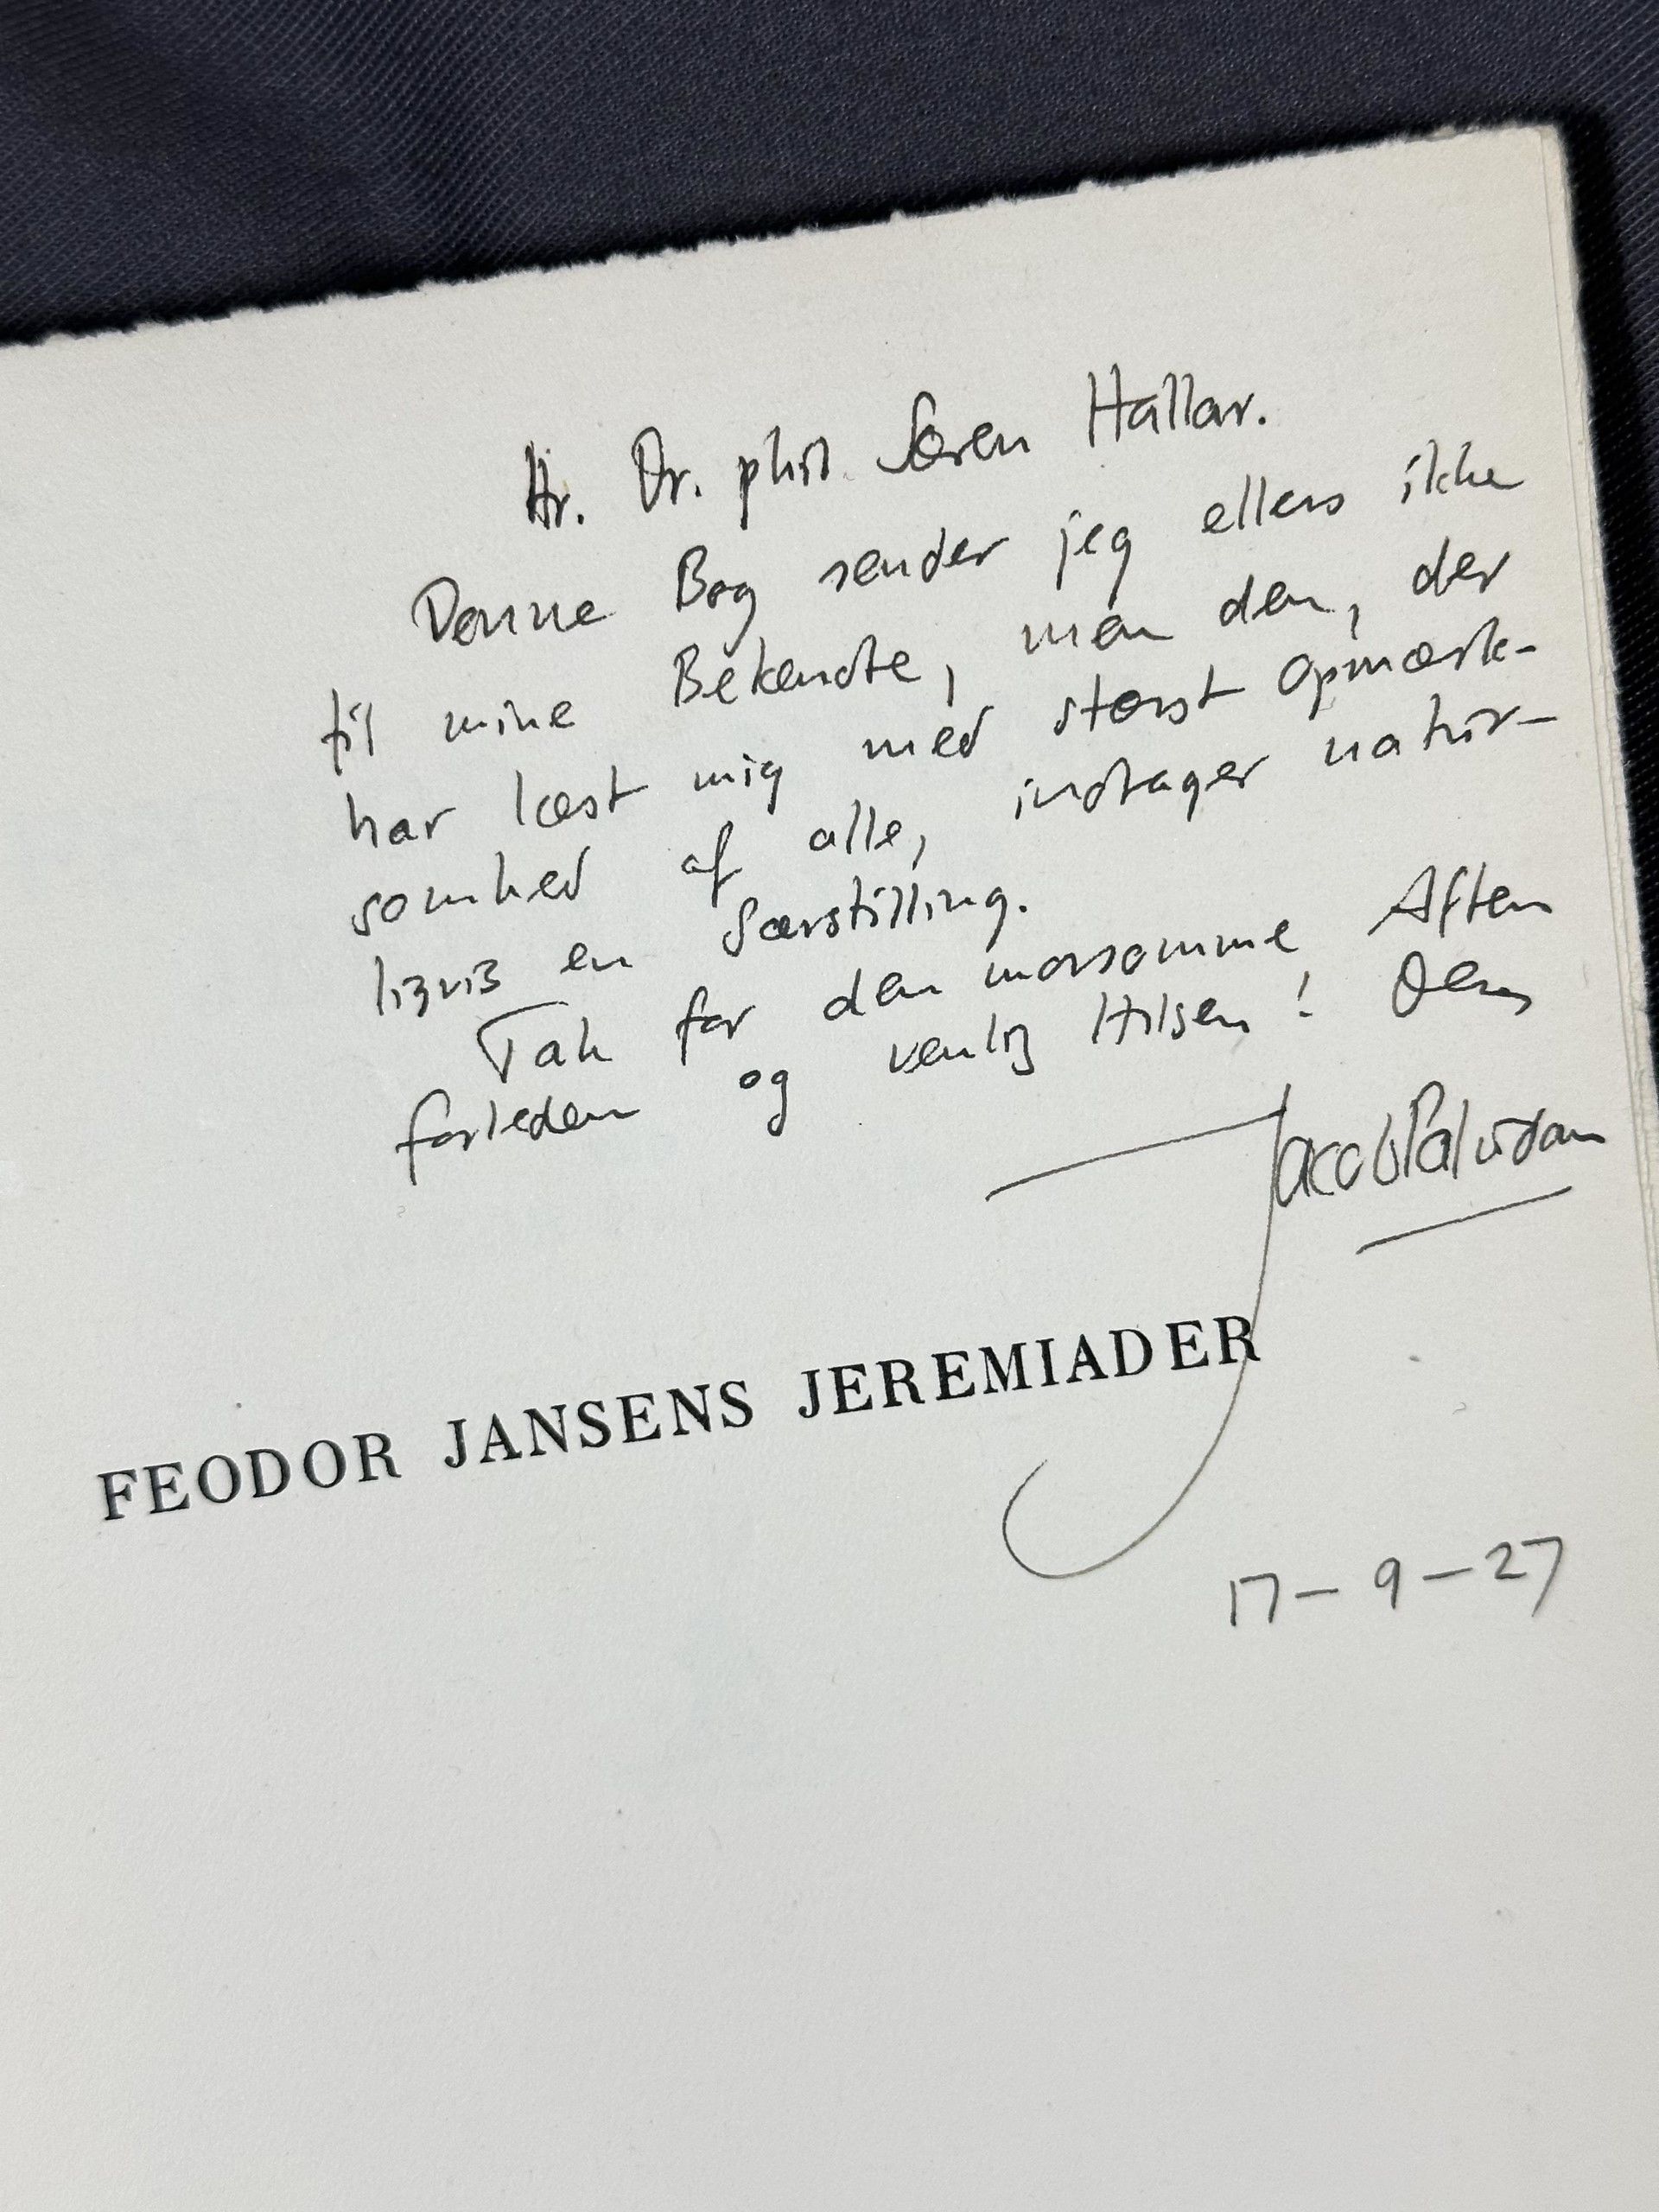 Hr. Dr. phil Søren Hallar.
Denne Bog sender jeg ellers ikke
til mine Bekendte, men den, der
har læst mig med størst Opmærk-
somhed af alle, indtager natur-
ligvis en Særstilling.
Tak for den morsomme Aften
forleden og venlig Hilsen! Deres
Jacob Paludan
FEODOR JANSENS JEREMIADER
17-9-27